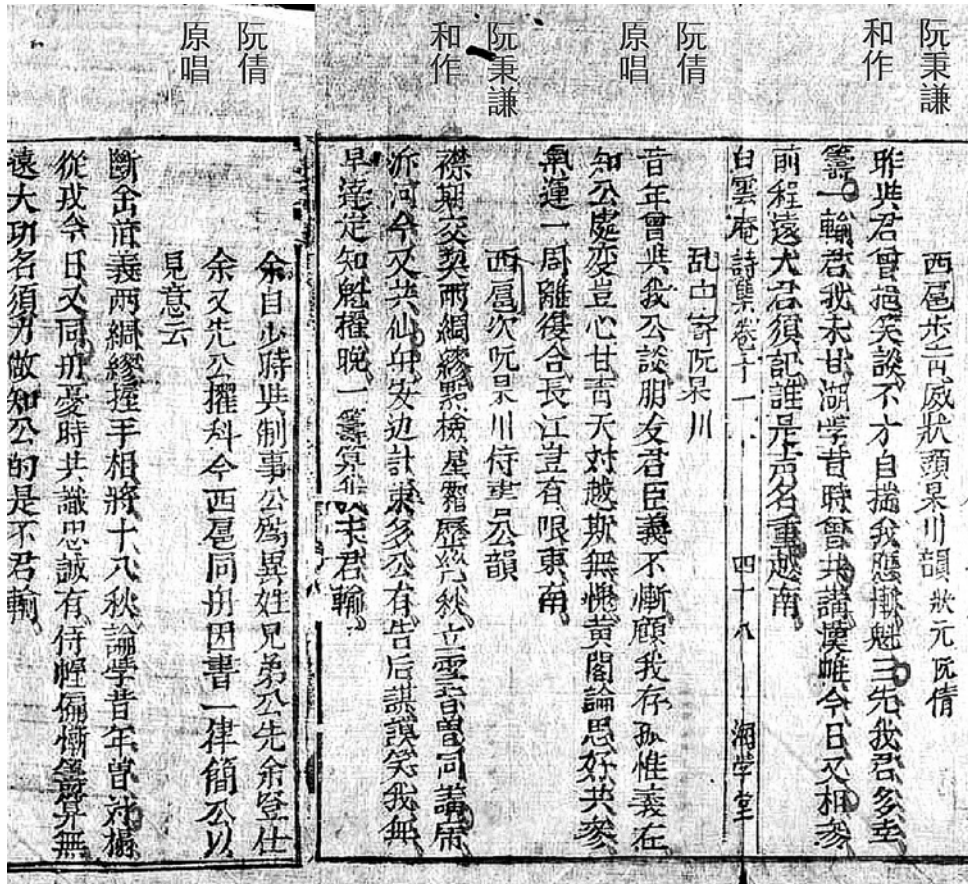 阮秉謙
和作
西扈步威狀頭杲川韻 狀元阮倩
昨與君曾挹笑談不才自揣我應慚魁三先我君多幸
籌一輸君我未甘湖學昔時曾共講漢帷今日又相參
前程遠大君須記誰是芳名重越南
白雲庵詩集卷十一 四十八 湖學堂
阮倩
原唱
乱中寄阮杲川
昔年曾與我公談朋友君臣義不慚顧我存孤惟義在
知公處变豈心甘青天對越斯無愧黃閣論思好共參
氣運一周離復合長江豈有限東南
阮秉謙
和作
西扈次阮杲川侍書公韻
襟期交契兩綢繆點檢星霜歷幾秋立雪昔曾同講席
泝河今又共仙舟安边計策多公有告后謀謨笑我無
早達定知魁擢晚一籌算我未君輸
阮倩
原唱
余自少時與制事公爲異姓兄弟公先余登仕
余又先公擢科今西扈同舟因書一律簡公以
見意云
斷金前義兩綢繆握手相將十八秋論學昔年曾对榻
從戎今日又同舟憂時共識忠誠有侍幄偏慚籌算無
遠大功名須力做知公的是不君輸